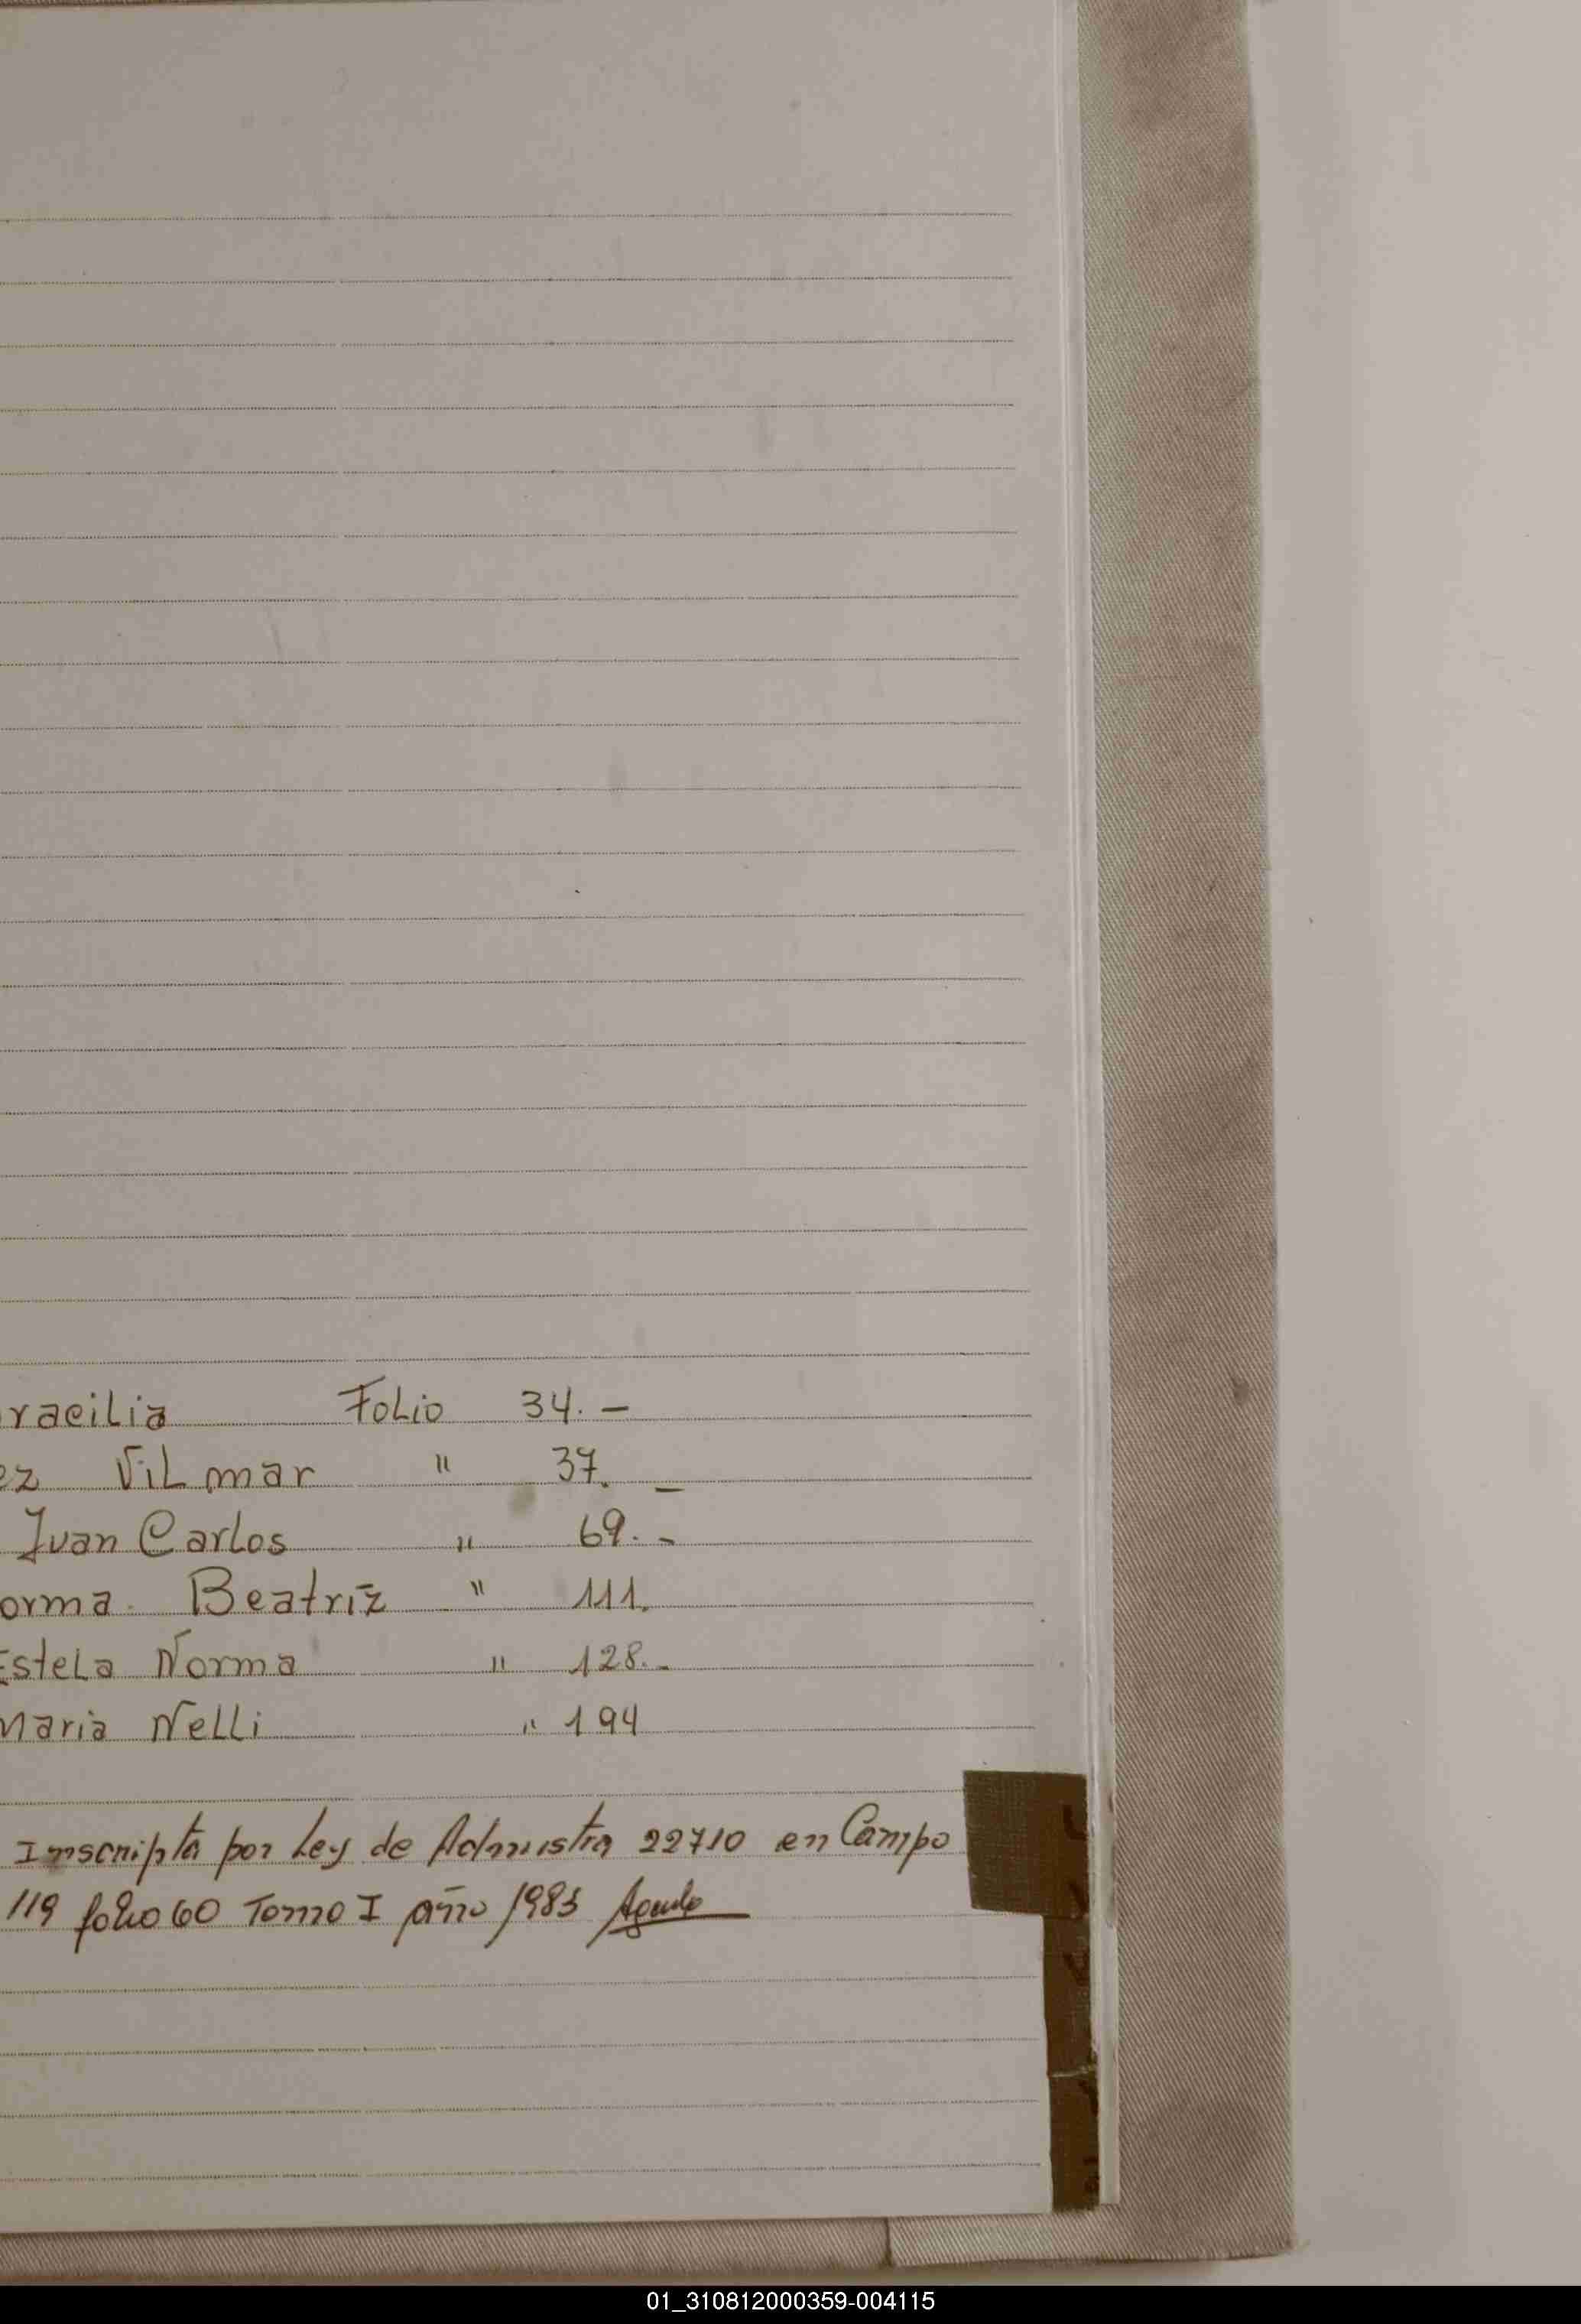 racilia Folio 34. –
ez Vilmar " 37. –
Juan Carlos " 69. –
orma Beatriz " 111.
Estela Norma " 128. –
Maria Nelli " 194
Inscripta por Ley de Admistia 22710 en Campo
119 folio 60 Tomo I año 1983
01_310812000359-004115